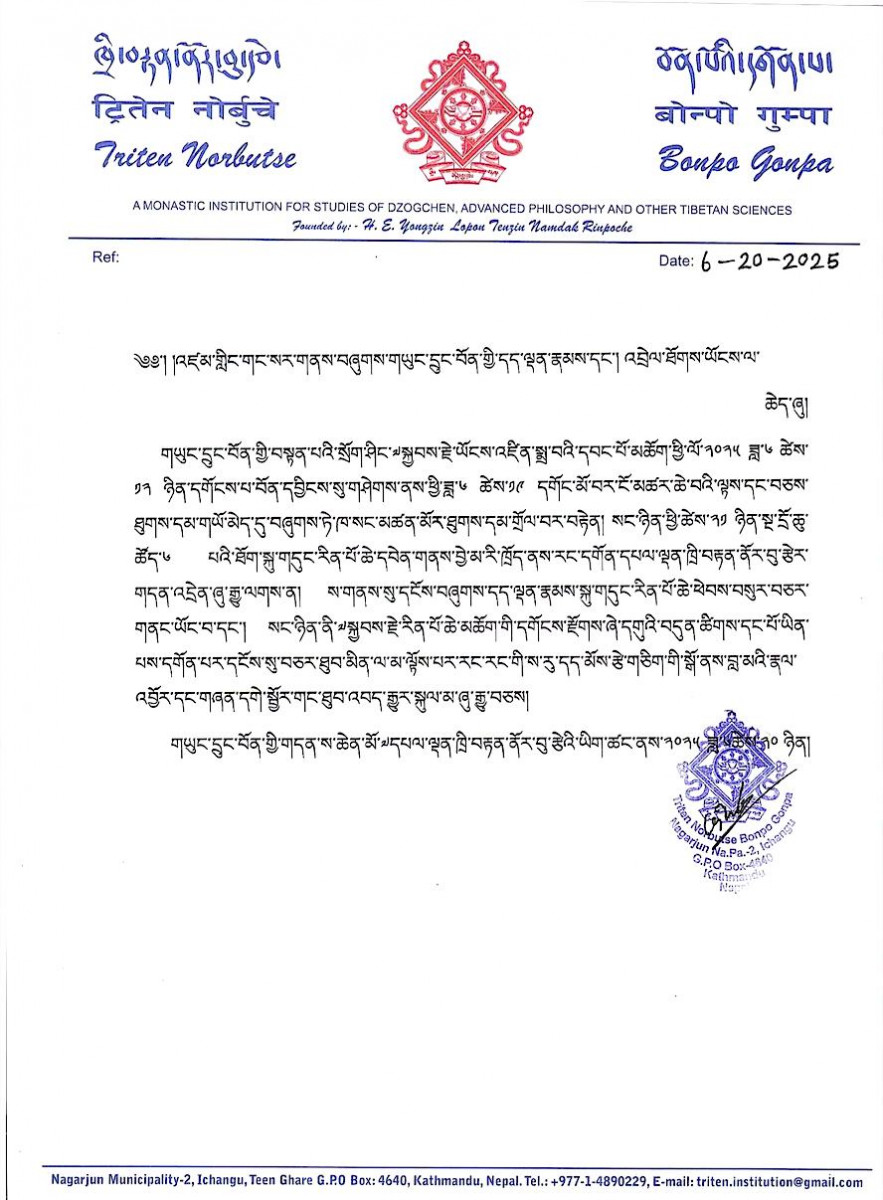 ཁྲི་བརྟན་ནོར་བུ་རྩེ།
བོན་པོའི་དགོན་པ།
ट्रितेन नोर्बुचे
बोन्पो गुम्पा
Triten Norbutse
Bonpo Gonpa
A MONASTIC INSTITUTION FOR STUDIES OF DZOGCHEN, ADVANCED PHILOSOPHY AND OTHER TIBETAN SCIENCES
Founded by: - H. E. Yongzin Lopon Tenzin Namdak Rinpoche
Ref:
Date: 6-20-2025
༄༅། །འཛམ་གླིང་གང་སར་གནས་བཞུགས་གཡུང་དྲུང་བོན་གྱི་དད་ལྡན་རྣམས་དང་། འབྲེལ་ཐོགས་ཡོངས་ལ་
ཆེད་ཞུ།
གཡུང་དྲུང་བོན་གྱི་བསྟན་པའི་སྲོག་ཤིང་༧སྐྱབས་རྗེ་ཡོངས་འཛིན་སྨྲ་བའི་དབང་པོ་མཆོག་ཕྱི་ལོ་༢༠༢༥ ཟླ་༦ ཚེས་
༡༢ ཉིན་དགོངས་པ་བོན་དབྱིངས་སུ་གཤེགས་ནས་ཕྱི་ཟླ་༦ ཚེས་༡༩ དགོང་མོ་བར་ངོ་མཚར་ཆེ་བའི་ལྟས་དང་བཅས་
ཐུགས་དམ་གཡོ་མེད་དུ་བཞུགས་ཏེ་ཁ་སང་མཚན་མོར་ཐུགས་དམ་གྲོལ་བར་བརྟེན། སང་ཉིན་ཕྱི་ཚེས་༢༡ ཉིན་སྔ་དྲོ་ཆུ་
ཚོད་༦ པའི་ཐོག་སྐུ་གདུང་རིན་པོ་ཆེ་དབེན་གནས་བྱེ་མ་རི་ཁྲོད་ནས་རང་དགོན་དཔལ་ལྡན་ཁྲི་བརྟན་ནོར་བུ་རྩེར་
གདན་འདྲེན་ཞུ་རྒྱུ་ལགས་ན། ས་གནས་སུ་དངོས་བཞུགས་དད་ལྡན་རྣམས་སྐུ་གདུང་རིན་པོ་ཆེ་ཕེབས་བསུར་བཅར་
གནང་ཡོང་བ་དང་། སང་ཉིན་ནི་༧སྐྱབས་རྗེ་རིན་པོ་ཆེ་མཆོག་གི་དགོངས་རྫོགས་ཞེ་དགུའི་བདུན་ཚིགས་དང་པོ་ཡིན་
པས་དགོན་པར་དངོས་སུ་བཅར་ཐུབ་མིན་ལ་མ་ལྟོས་པར་རང་རང་གི་ས་རུ་དད་མོས་རྩེ་གཅིག་གི་སྒོ་ནས་བླ་མའི་རྣལ་
འབྱོར་དང་གཞན་དགེ་སྦྱོར་གང་ཐུབ་འབད་རྒྱུར་སྐུལ་མ་ཞུ་རྒྱུ་བཅས།
གཡུང་དྲུང་བོན་གྱི་གདན་ས་ཆེན་མོ་༧དཔལ་ལྡན་ཁྲི་བརྟན་ནོར་བུ་རྩེའི་ཡིག་ཚང་ནས་༢༠༢༥ ཟླ་༦ཚེས་༢༠ ཉིན།
Triten Norbutse Bonpo Gonpa
Nagarjun Na.Pa.-2, Ichangu
G.P.O Box-4640
Kathmandu
Nepal
Nagarjun Municipality-2, Ichangu, Teen Ghare G.P.O Box: 4640, Kathmandu, Nepal. Tel.: +977-1-4890229, E-mail: triten.institution@gmail.com